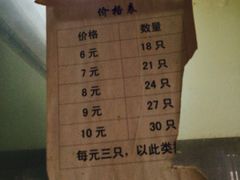 价格表
价格 数量
6 元 18 只
7 元 21 只
8 元 24 只
9 元 27 只
10 元 30 只
每元三只，以此类